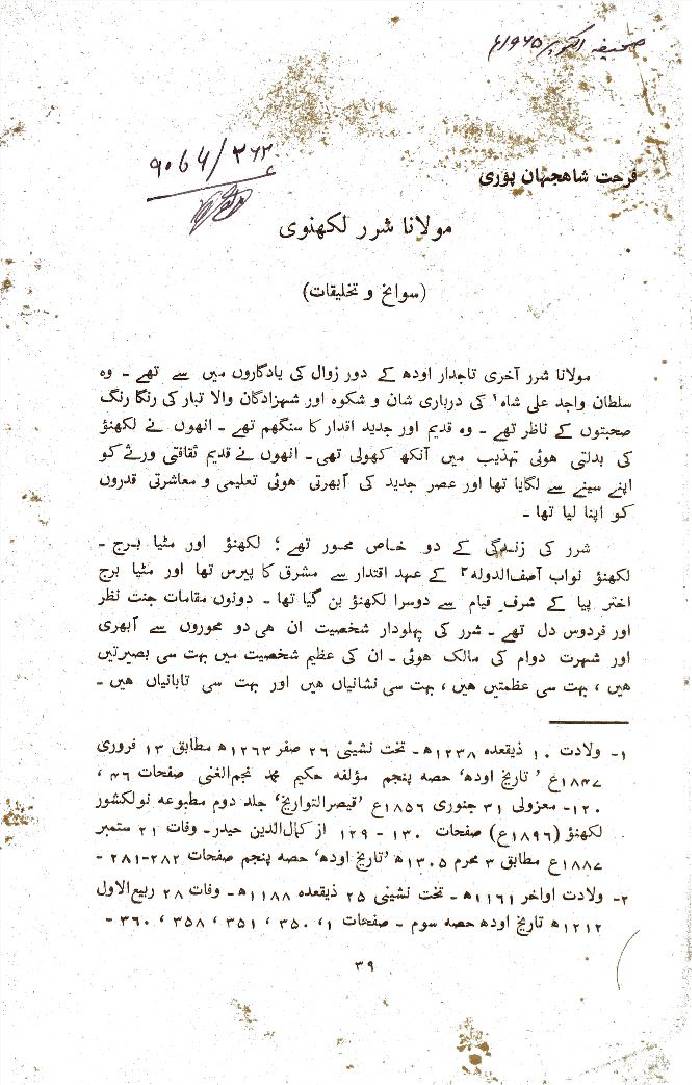 صحیفہ اکتوبر ۱۹۶۵ء
فرحت شاهجہان پوری
مولانا شرر لکھنوی
(سوانح و تخلیقات)
مولانا شرر آخری تاجدار اودھ کے دور زوال کی یادگاروں میں سے تھے ۔ وہ
سلطان واجد علی شاہ۱ کی درباری شان و شکوہ اور شہزادگان والا تبار کی رنگا رنگ
صحبتوں کے ناظر تھے ۔ وہ قدیم اور جدید اقدار کا سنگھم تھے ۔ انھوں نے لکھنؤ
کی بدلتی ہوئی تہذیب میں آنکھ کھولی تھی ۔ انھوں نے قدیم ثقافتی ورثے کو
اپنے سینے سے لگایا تھا اور عصر جدید کی اُبھرتی ہوئی تعلیمی و معاشرتی قدروں
کو اپنا لیا تھا ۔
شرر کی زندگی کے دو خاص محور تھے ؛ لکھنؤ اور مٹیا برج ۔
لکھنؤ نواب آصف‌الدولہ۲ کے عہد اقتدار سے مشرق کا پیرس تھا اور مٹیا برج
اختر پیا کے شرفِ قیام سے دوسرا لکھنؤ بن گیا تھا ۔ دونوں مقامات جنت نظر
اور فردوس دل تھے ۔ شرر کی پہلودار شخصیت ان ھی دو محوروں سے اُبھری
اور شہرت دوام کی مالک ہوئی ۔ ان کی عظیم شخصیت میں بہت سی بصیرتیں
ھیں ، بہت سی عظمتیں ھیں ، بہت سی نشانیاں ھیں اور بہت سی تابانیاں ھیں ۔
۱- ولادت ۱۰ ذیقعدہ ۱۲۳۸ھ ۔ تخت نشینی ۲۶ صفر ۱۲۶۳ھ مطابق ۱۳ فروری
۱۸۴۷ع ’ تاریخ اودھ‘ حصہ پنجم مؤلفہ حکیم محمد نجم‌الغنی صفحات ۴۶ ،
۱۲۰- معزولی ۳۱ جنوری ۱۸۵۶ع ’قیصرالتواریخ‘ جلد دوم مطبوعہ نولکشور
لکھنؤ (۱۸۹۶ع) صفحات ۱۳۰ - ۱۲۹ از کمال‌الدین حیدر ۔ وفات ۲۱ ستمبر
۱۸۸۷ع مطابق ۳ محرم ۱۳۰۵ھ ’تاریخ اودھ‘ حصہ پنجم صفحات ۲۸۲-۲۸۱ -
۲- ولادت اواخر ۱۱۶۱ھ ۔ تخت نشینی ۲۵ ذیقعدہ ۱۱۸۸ھ ۔ وفات ۲۸ ربیع‌الاول
۱۲۱۲ھ تاریخ اودھ حصہ سوم ۔ صفحات ۱ ، ۳۵۰ ، ۳۵۱ ، ۳۵۸ ، ۳۶۰ -
۳۹